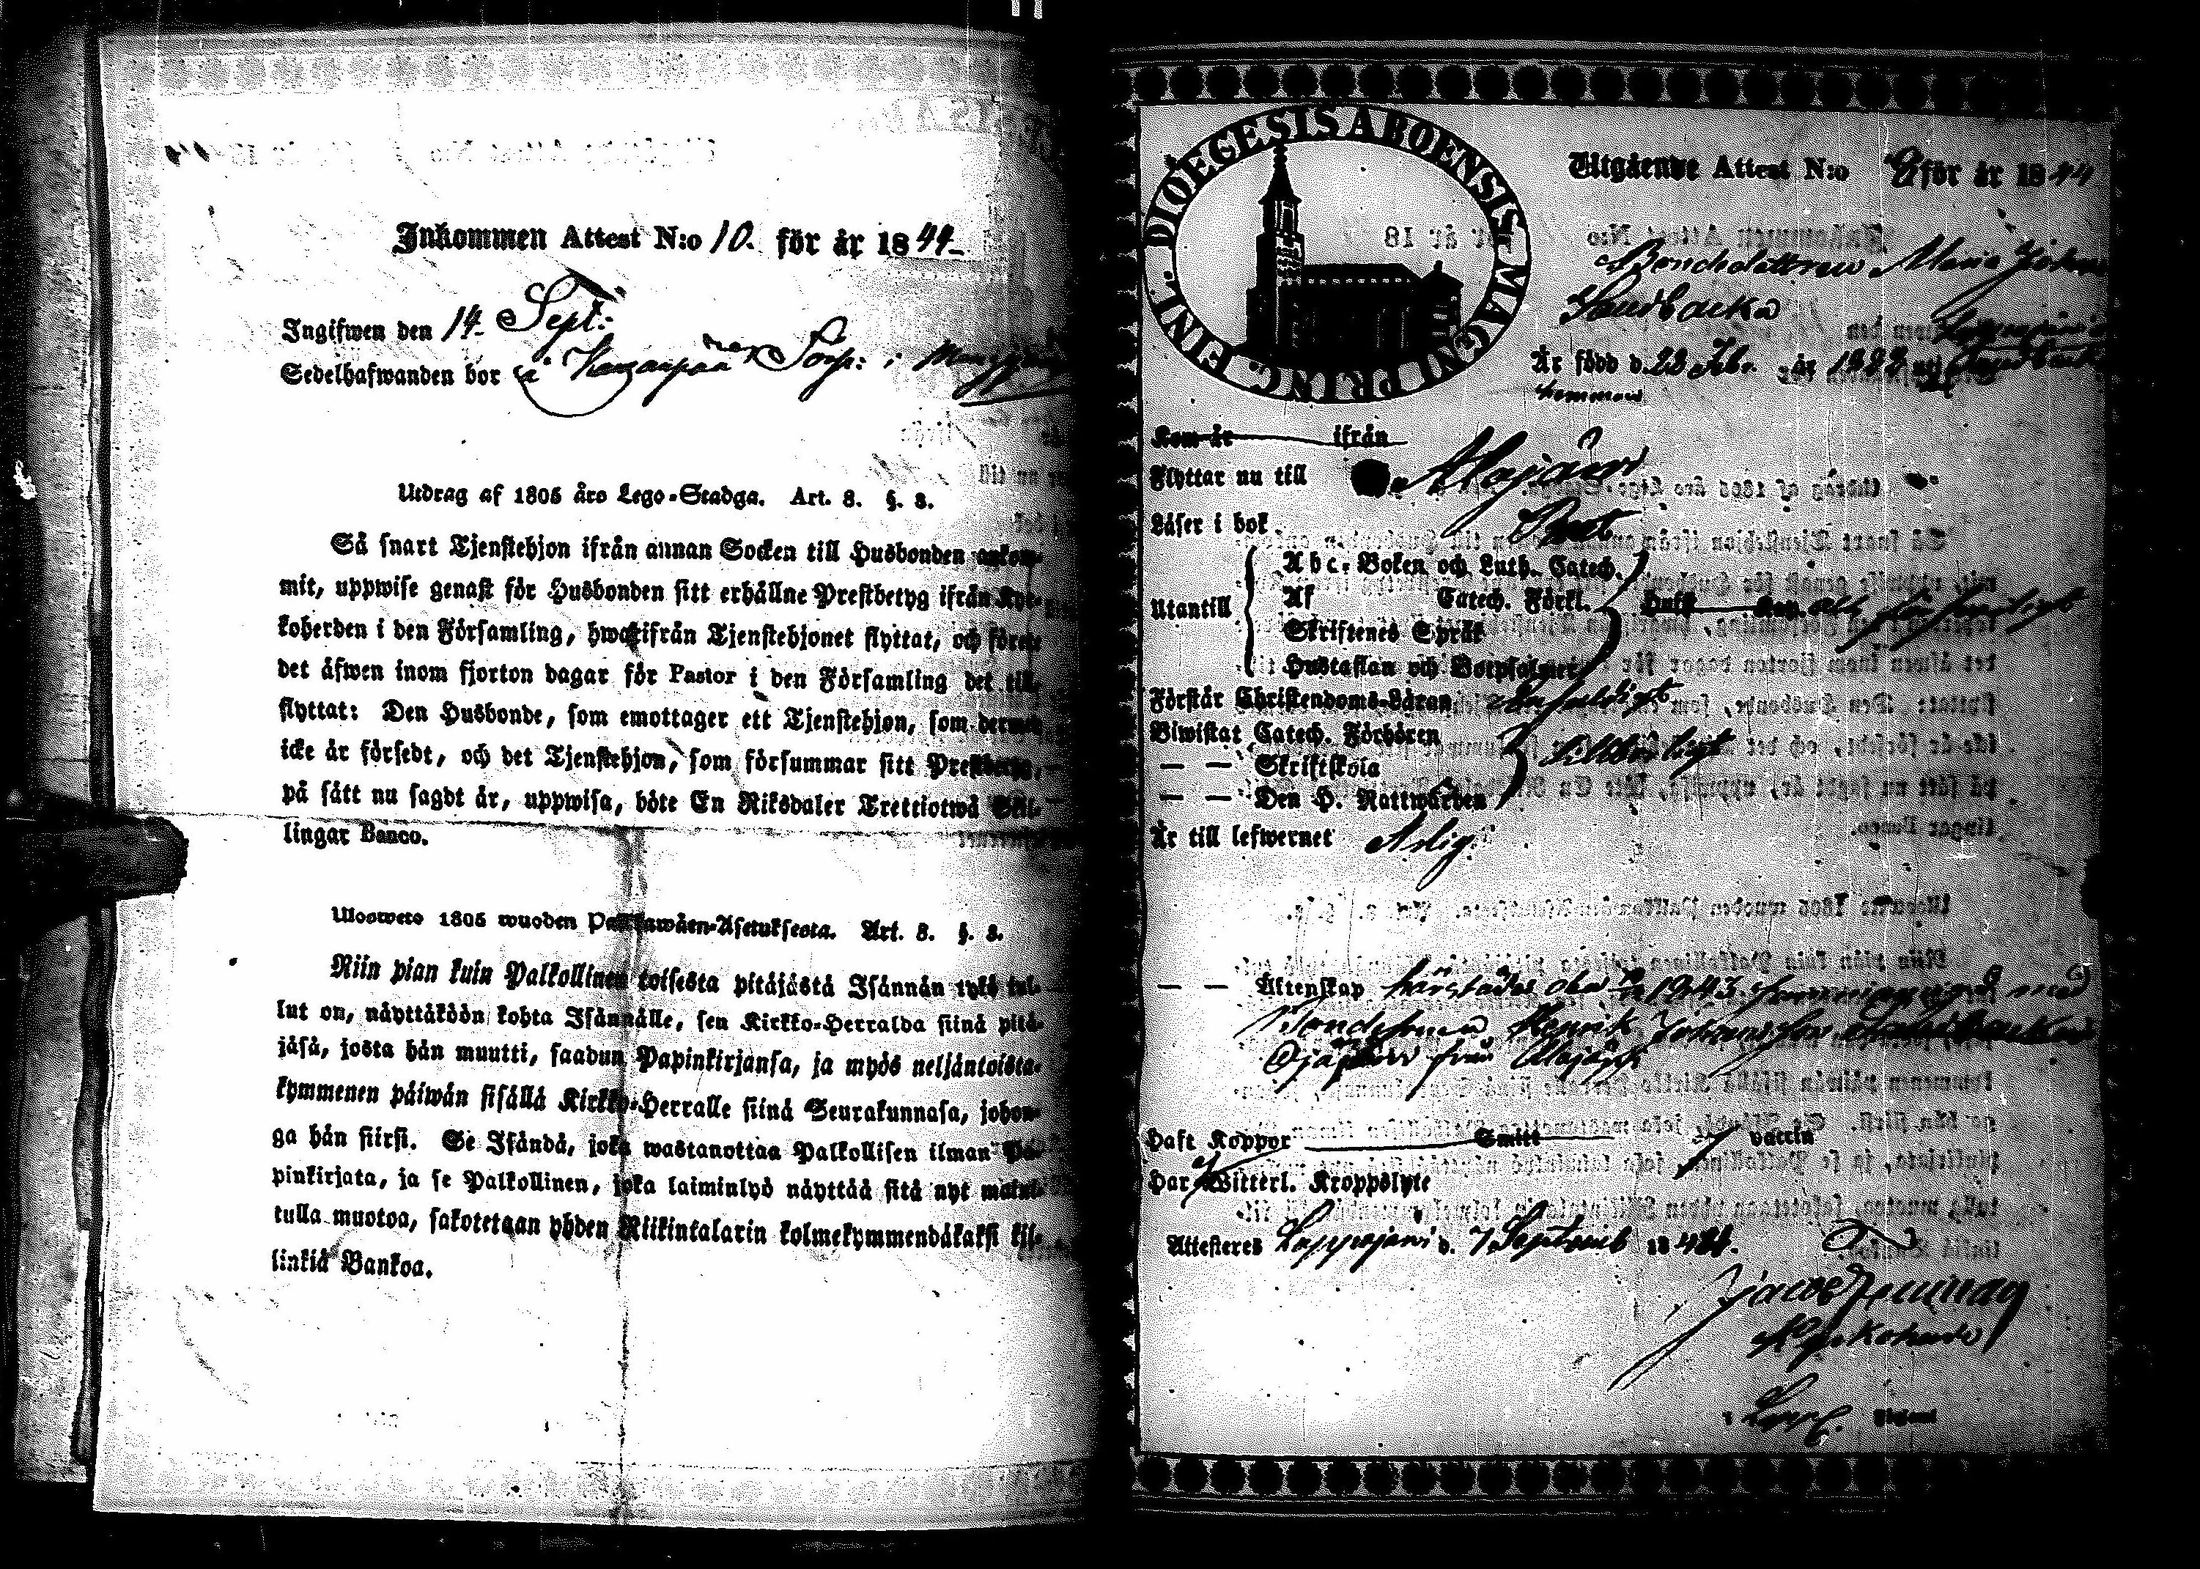 Inkommen Attest N:o 10. för år 1844.
Ingifwen den 14 Sept:
Sedelhafwanden bor i Torp: i
Utdrag af 1805 års Lego-Stadga. Art. 8. §. 3.
Så snart Tjenstehjon ifrån annan Socken till Husbonden ankom-
mit, uppwise genast för Husbonden sitt erhållne Prestbetyg ifrån Kyr-
koherden i den Församling, hwarifrån Tjenstehjonet flyttat, och förete
det äfwen inom fjorton dagar för Pastor i den Församling det till-
flyttat: Den Husbonde, som emottager ett Tjenstehjon, som dermed
icke är försedt, och det Tjenstehjon, som försummar sitt Prestbetyg,
på sätt nu sagdt är, uppwisa, böte En Riksdaler Trettiotwå Skil-
lingar Banco.
Uloswete 1805 wuoden Palkkawäen-Asetuksesta. Art. 8. §. 3.
Niin pian kuin Palkollinen toisesta pitäjästä Isännän tykö tul-
lut on, näyttäköön kohta Isännälle, sen Kirkko-Herralda siinä pitä-
jäsä, josta hän muutti, saadun Papinkirjansa, ja myös neljäntoista-
kymmenen päiwän sisällä Kirkko-Herralle siinä Seurakunnasa, johon-
ga hän siirsi. Se Isändä, joka wastanottaa Palkollisen ilman Pa-
pinkirjata, ja se Palkollinen, joka laiminlyö näyttää sitä nyt mainit-
tulla muotoa, sakotetaan yhden Riikintalarin kolmekymmendäkaksi kil-
linkiä Bankoa.
DIOECESIS ABOENSIS MAGNI PRINC. FINL.
Utgående Attest N:o 8 för år 1844
Bondedottren Maria Johans
Sandbacka
Är född d. 23 Febr. år 1822 uti
Kom år ifrån
Flyttar nu till Alajärvi
Läser i bok
Utantill
Abc-Boken och Luth. Catech.
Af Catech. Förkl.
Skriftenes Språk
Hustaflan och Botpsalmer
Förstår Christendoms-Läran enfaldigt
Biwistat Catech. Förhören
— — Skriftskola
— — Den H. Nattwarden
Är till lefwernet Ärlig.
— — Äktenskap 1843 med
Bondesonen Henrik Johansson
från Alajärvi
Haft Koppor Smitt vaccin
Har Witterl. Kroppslyte
Attesteras Lappajärvi d. 7 Septemb 1844.